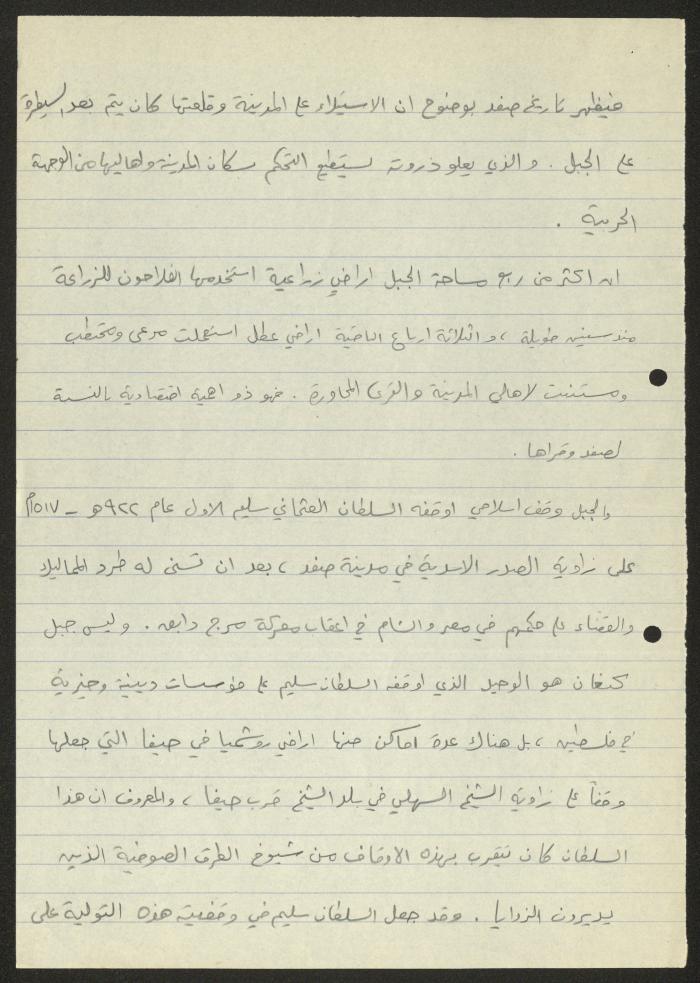 فيظهر تاريخ صفد بوضوح ان الاستيلاء على المدينة وقلعتها كان يتم بعد السيطرة
على الجبل . والذي يعلو ذروته يستطيع التحكم بسكان المدينة واهاليها من الوجهة
الحربية .
ان اكثر من ربع مساحة الجبل اراضي زراعية استخدمها الفلاحون للزراعة
منذ سنين طويلة ، والثلاثة ارباع الباقية اراضي عطل استعملت مرعى ومحتطب
ومستنبت لاهالي المدينة والقرى المجاورة . فهو ذو اهمية اقتصادية بالنسبة
لصفد وقراها .
والجبل وقف اسلامي اوقفه السلطان العثماني سليم الاول عام ٩٢٢هـ - ١٥١٧م
على زاوية الصدر الاسدية في مدينة صفد ، بعد ان تسنى له طرد المماليك
والقضاء على حكمهم في مصر والشام في اعقاب معركة مرج دابق . وليس جبل
كنعان هو الوحيد الذي اوقفه السلطان سليم على مؤسسات دينية وخيرية
في فلسطين ، بل هناك عدة اماكن منها اراضي روشميا في حيفا التي جعلها
وقفاً على زاوية الشيخ السهلي في بلد الشيخ قرب حيفا ، والمعروف ان هذا
السلطان كان يتقرب بهذه الاوقاف من شيوخ الطرق الصوفية الذين
يديرون الزوايا . وقد جعل السلطان سليم في وقفيته هذه التولية على